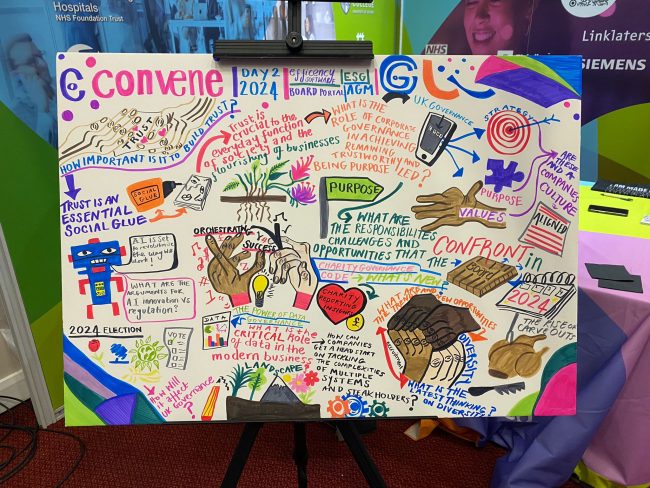 Hospitals
NHS Foundation Trust
COLLEGE
NHS
Linklaters
SIEMENS
convene
DAY 2
2024
efficency
SOFTWARE
BOARD PORTAL
ESG
AGM
TRUST
HOW IMPORTANT IS IT TO BUILD TRUST?
TRUST IS AN
ESSENTIAL
SOCIAL GLUE
SOCIAL
GLUE
Trust is
CRUCIAL to the
everyday function
of society and the
flourishing of businesses
WHAT IS THE
ROLE OF CORPORATE
GOVERNANCE
IN ACHIEVING
REMAINING
TRUSTWORTHY AND
BEING PURPOSE LED?
UK GOVERNANCE
STRATEGY
PURPOSE
VALUES
ARE
THESE
AND A
COMPANIES
CULTURE
ALIGNED
PURPOSE
WHAT ARE
THE RESPONSIBILITIES
CHALLENGES AND
OPPORTUNITIES THAT
CONFRONT in
THE
BOARDS
2024
THE RISE OF
CARVE OUTS
ORCHESTRATING
SUCCESS
A.I. IS SET
to revolutionise
the way we
work!
WHAT ARE THE
ARGUMENTS FOR
A.I innovation VS
regulation?
2024 ELECTION
VOTE
How will
it affect
UK GOVERNANCE
?
DATA
THE POWER OF DATA
GOVERNANCE
WHAT IS THE
CRITICAL Role
of data in the
modern business
LANDSCAPE
CHARITY GOVERNANCE
CODE
WHAT'S NEW
CHARITY
REPORTING
£
HOW CAN
COMPANIES
GET A HEAD START
ON TACKLING
THE COMPLEXITIES
OF MULTIPLE
SYSTEMS
AND STAKEHOLDERS?
OPPORTUNITIES
DIVERSITY
WHAT IS THE
LATEST THINKING
ON DIVERSITY?